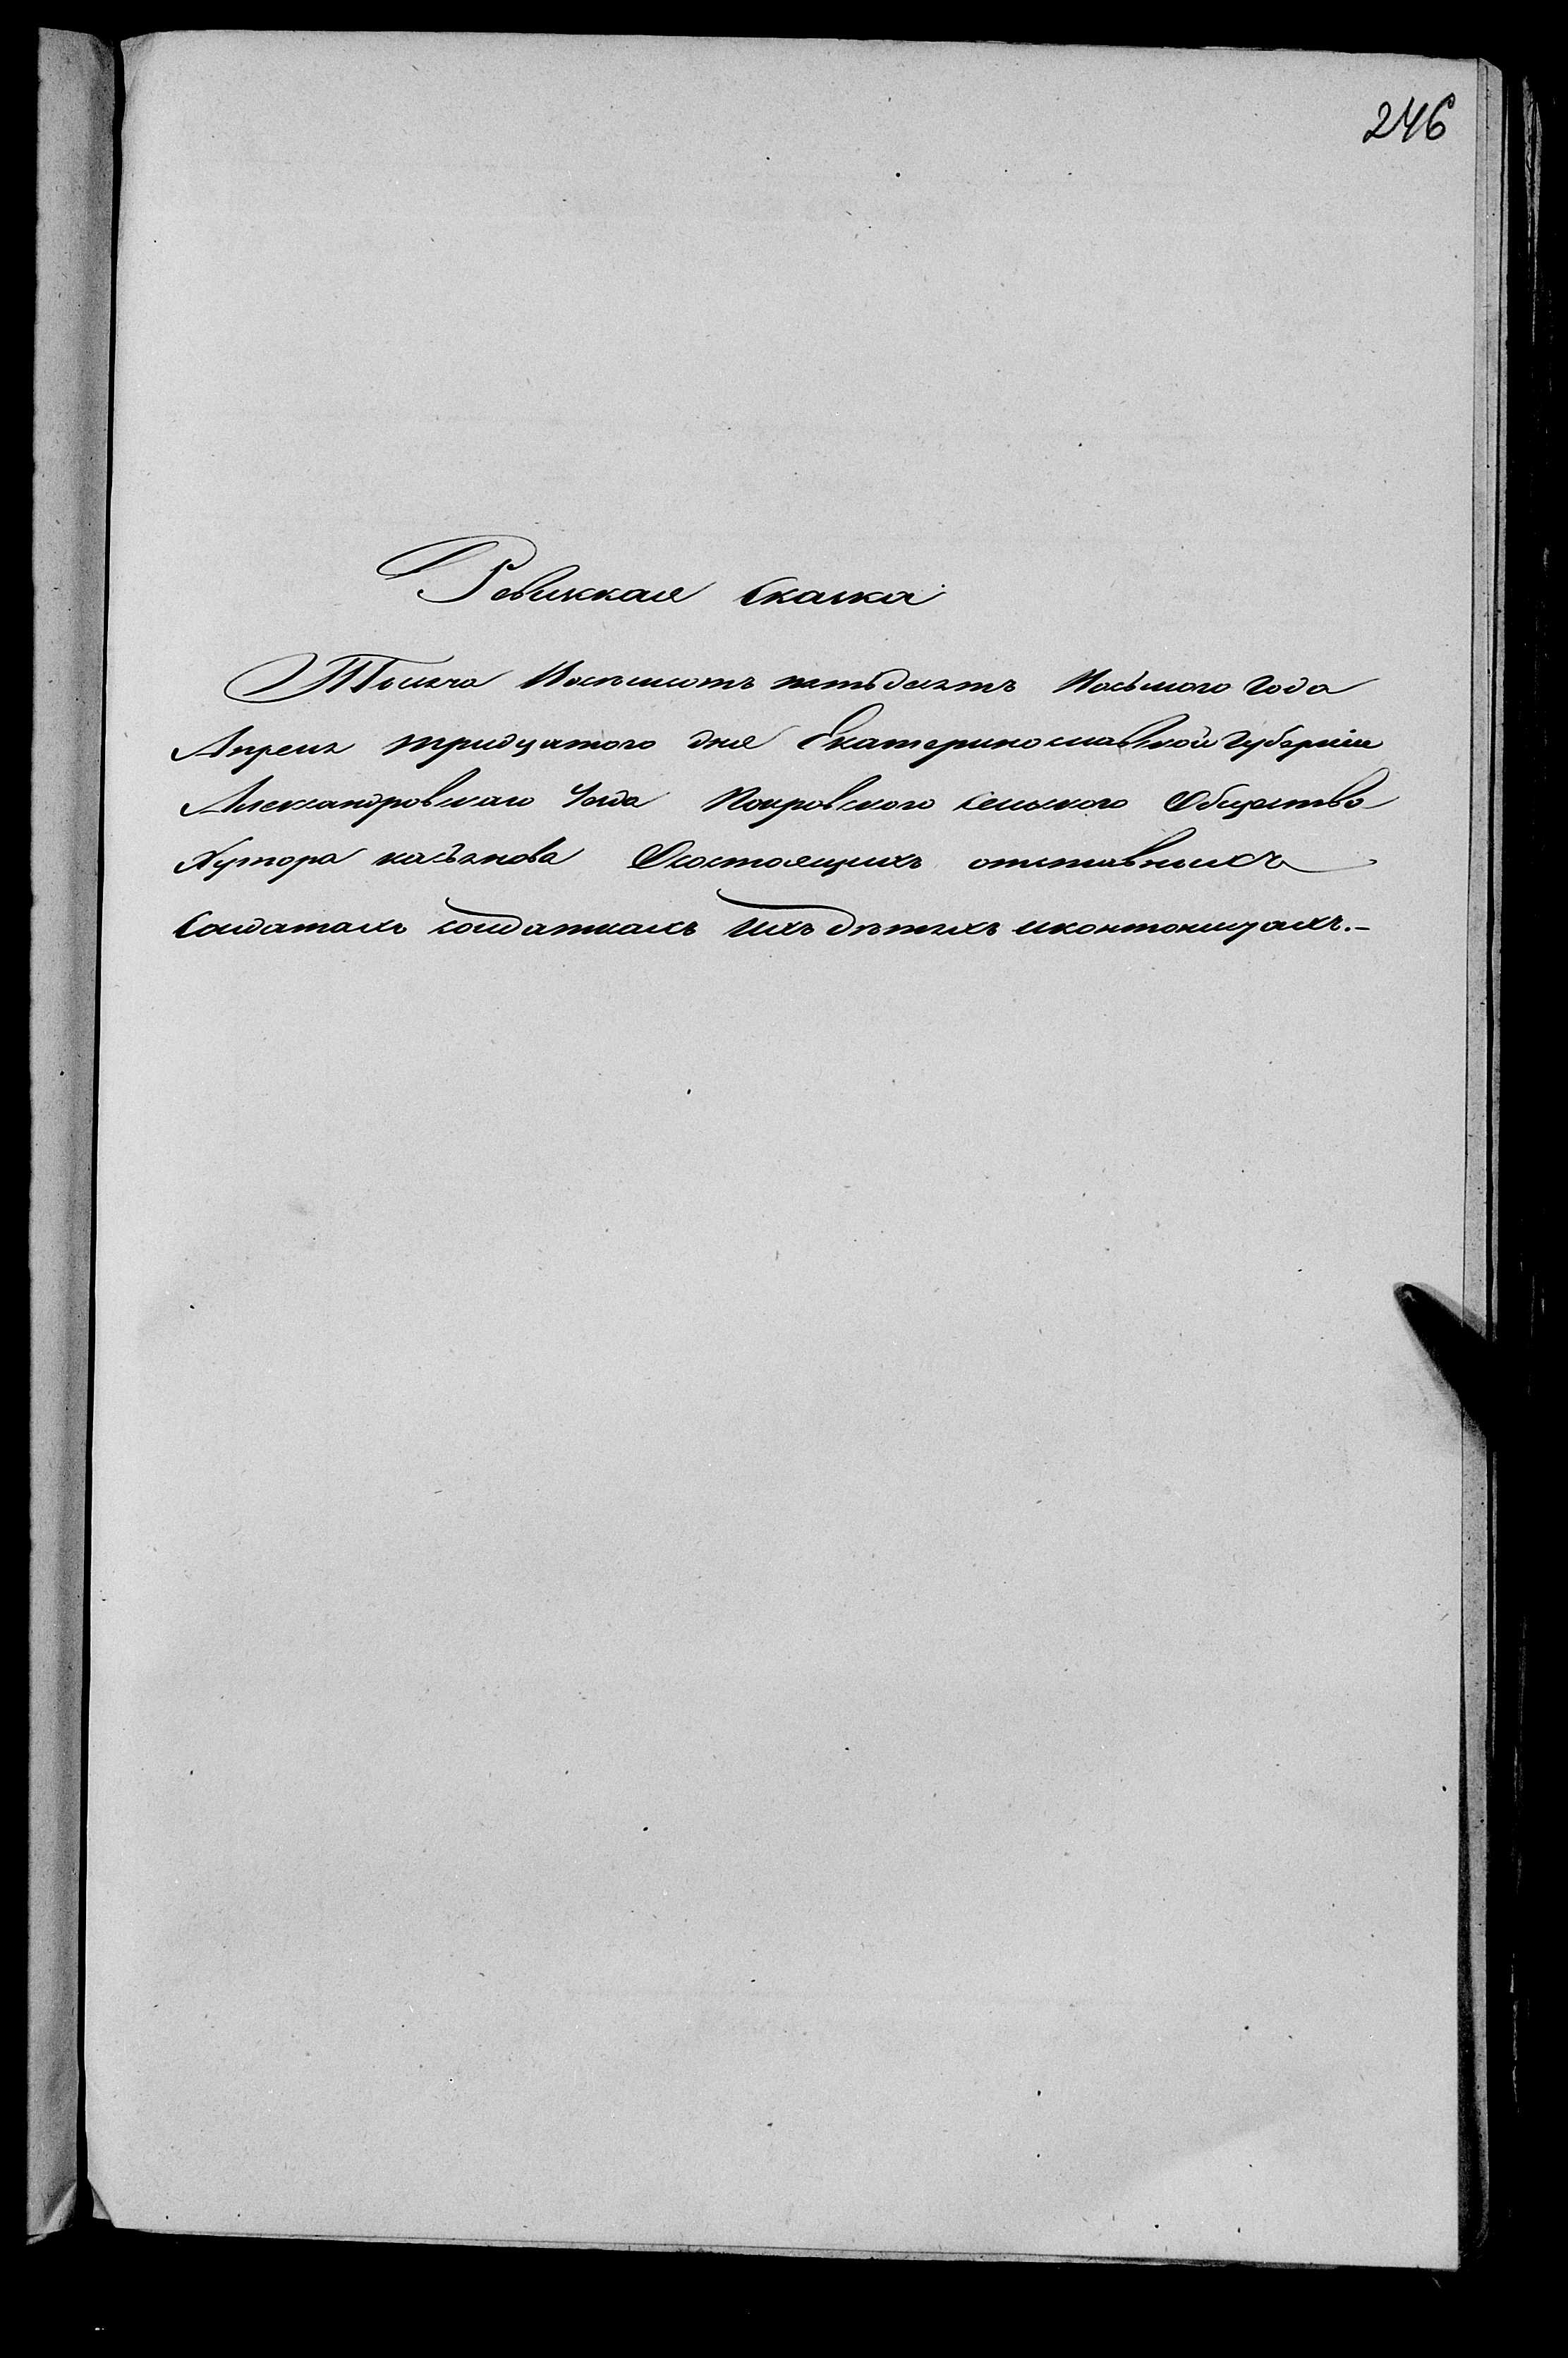 246
Ревижкая Скаска
Тысеча Восемсотъ пятьдесятъ Восьмого Года
Апреля тридцатого дня Екатеринославской Губерніи
Александровскаго Уезда Покровского Сельского Общества
Хутора касьянова Осостоящихъ отставныхъ
Солдатахъ солдаткахъ ихъ дѣтяхъ икантонистахъ.-